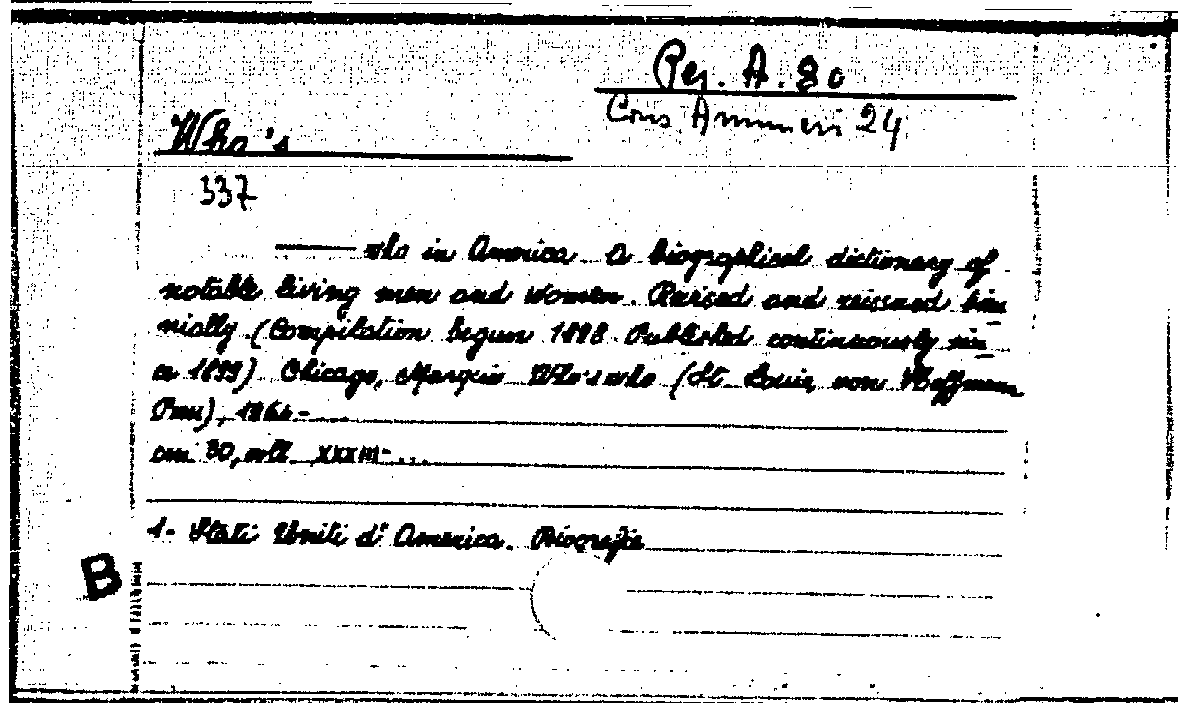 Per. A. 80
Cons Annuari 24
Who's
337
—— who in America. A biographical dictionary of
notable living men and women. Revised and reissued bien
nially (Compilation begun 1898. Published continuously sin
ce 1899) Chicago, Marquis Who's who (St. Louis, von Hoffmann
Press), 1964-...
cm. 30, voll. XXXIII-...
1- Stati Uniti d'America. Biografie
B